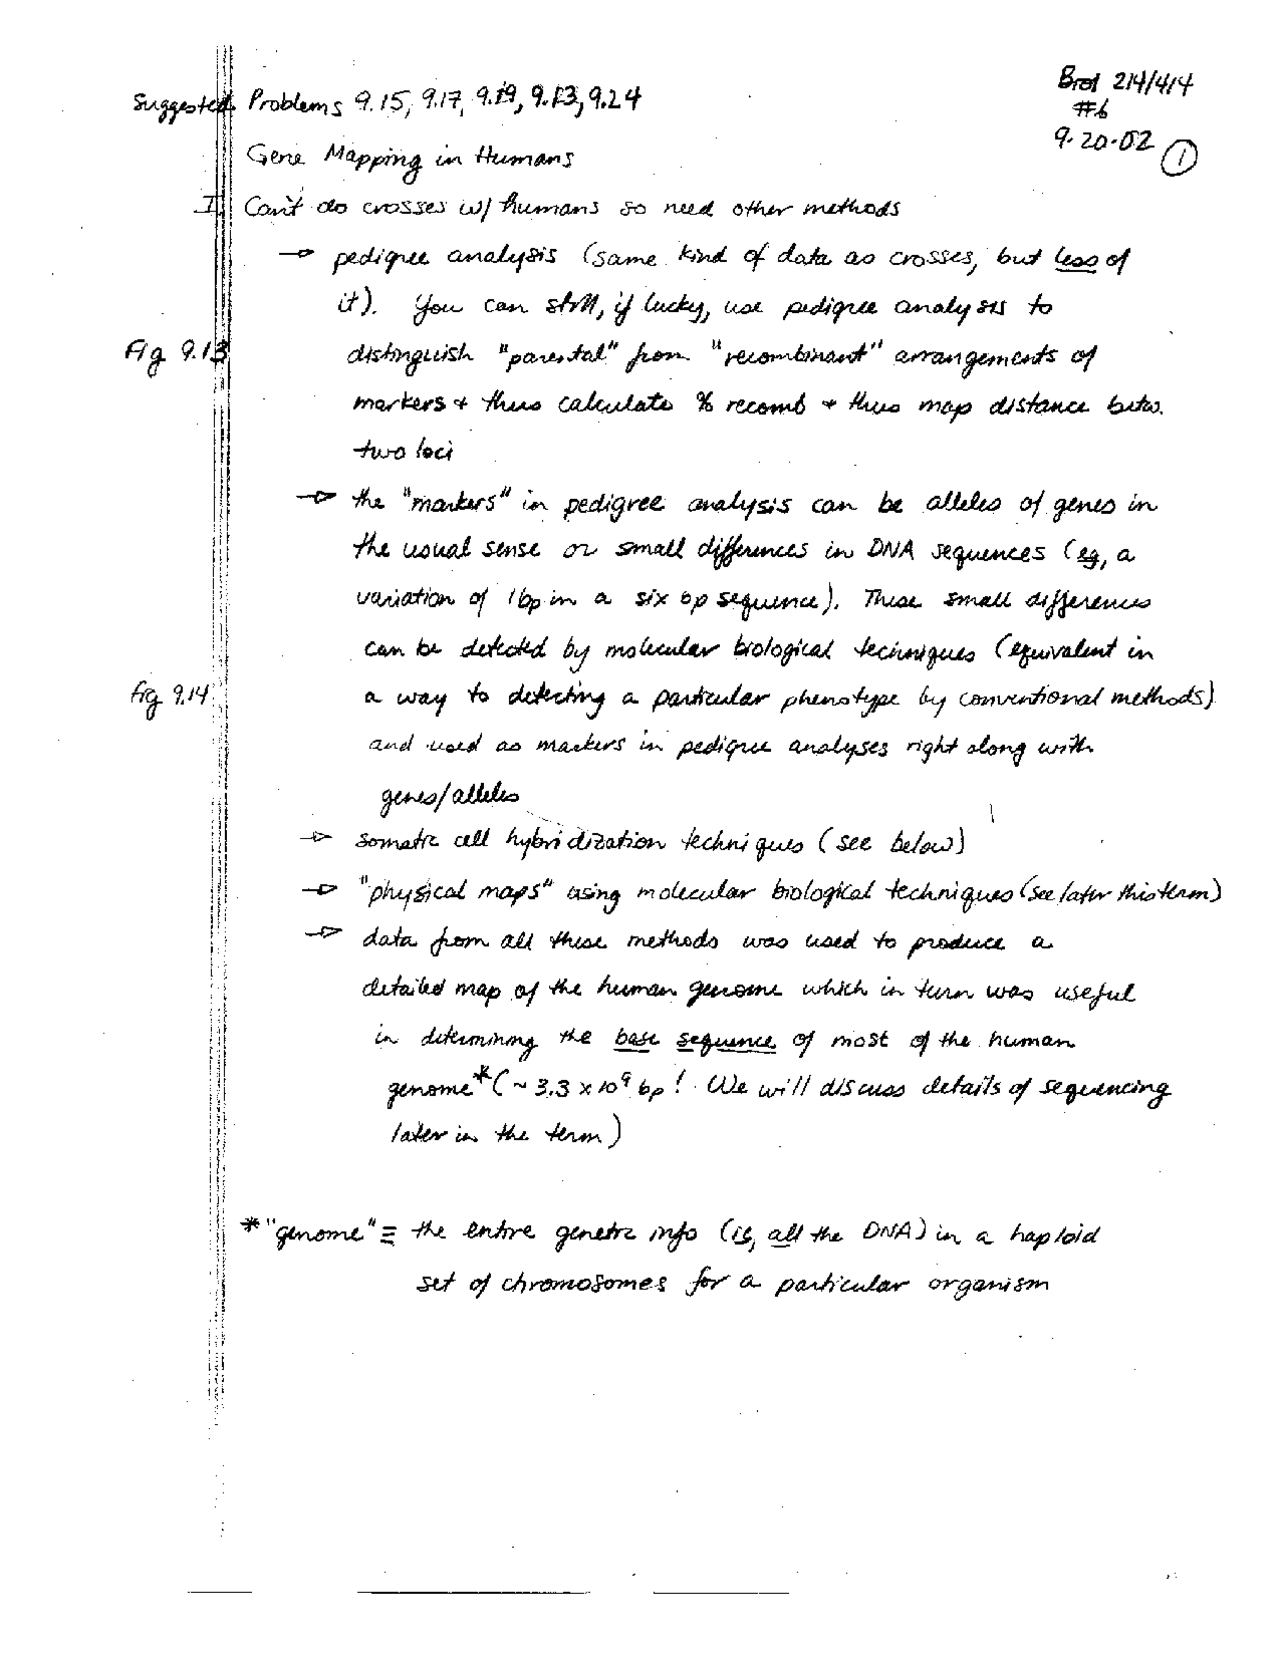 Biol 214/414
#6
9.20.02 ①
Suggested Problems 9.15, 9.17, 9.19, 9.23, 9.24
Gene Mapping in Humans
I Can't do crosses w/ humans so need other methods
→ pedigree analysis (same kind of data as crosses, but less of
it). You can still, if lucky, use pedigree analysis to
Fig 9.13 distinguish "parental" from "recombinant" arrangements of
markers + thus calculate % recomb + thus map distance betw.
two loci
→ the "markers" in pedigree analysis can be alleles of genes in
the usual sense or small differences in DNA sequences (eg, a
variation of 1bp in a six bp sequence). These small differences
can be detected by molecular biological techniques (equivalent in
Fig 9.14 a way to detecting a particular phenotype by conventional methods)
and used as markers in pedigree analyses right along with
genes/alleles
→ somatic cell hybridization techniques (see below)
→ "physical maps" using molecular biological techniques (see later this term)
→ data from all these methods was used to produce a
detailed map of the human genome which in turn was useful
in determining the base sequence of most of the human
genome* (~ 3.3 x 10⁹ bp! We will discuss details of sequencing
later in the term)
* "genome" ≡ the entire genetic info (ie, all the DNA) in a haploid
set of chromosomes for a particular organism